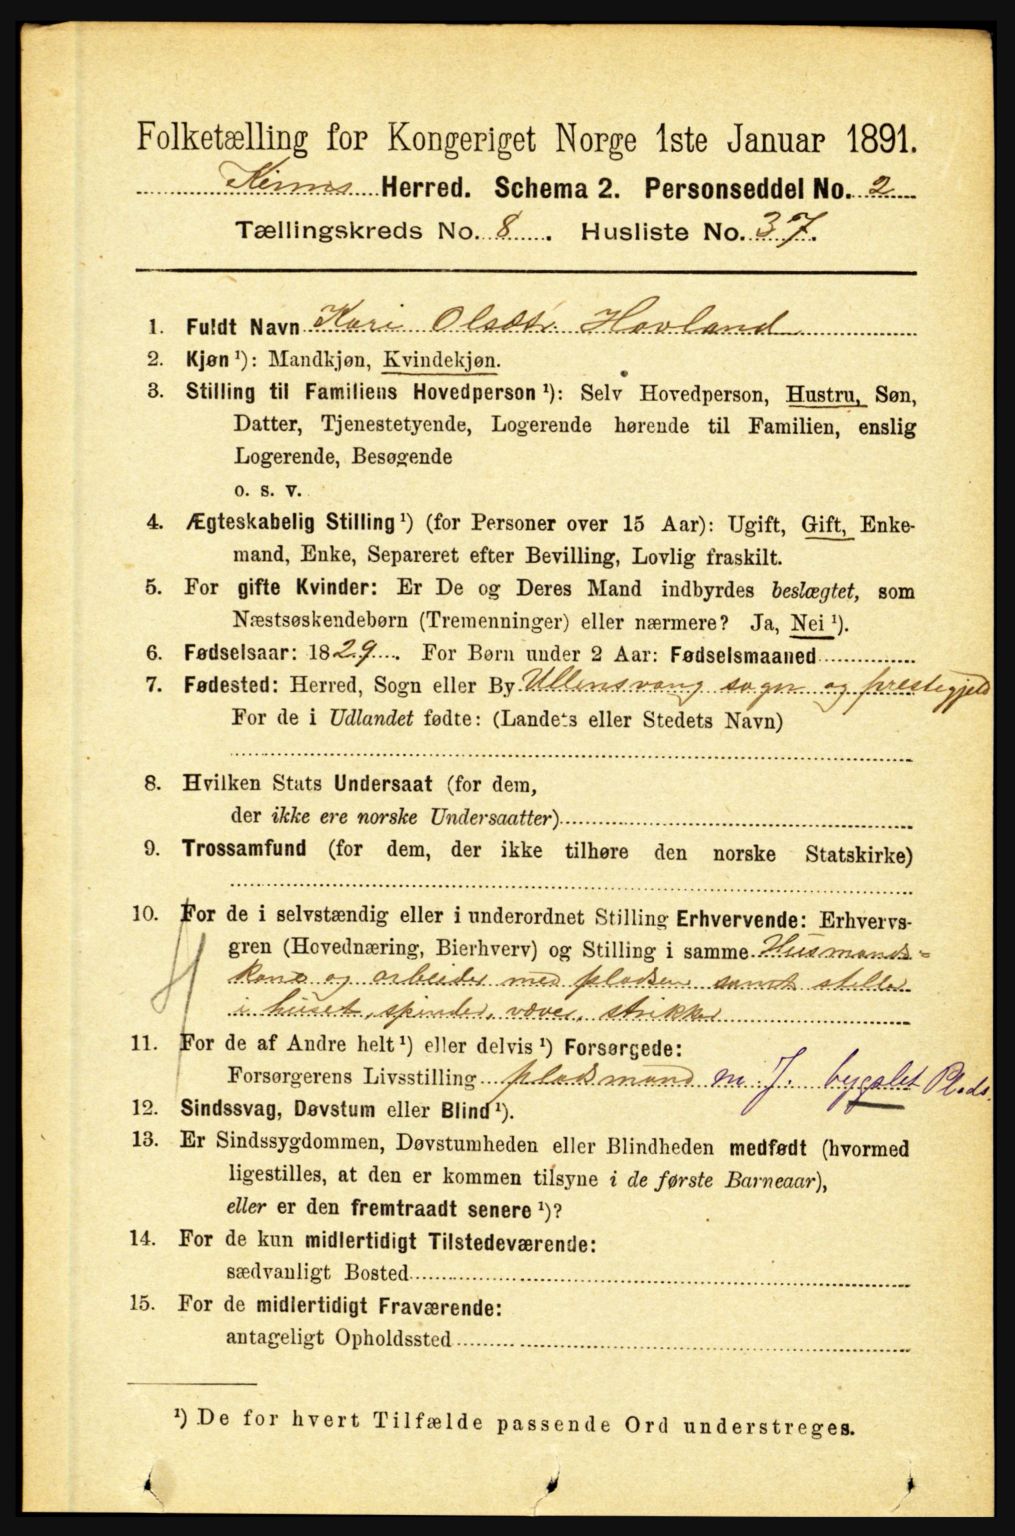 Folketælling for Kongeriget Norge 1ste Januar 1891.
Kinns Herred. Schema 2. Personseddel No. 2
Tællingskreds No. 8. Husliste No. 37.
1. Fuldt Navn Kari Olsdtr. Hovland
2. Kjøn ¹): Mandkjøn, Kvindekjøn.
3. Stilling til Familiens Hovedperson ¹): Selv Hovedperson, Hustru, Søn,
Datter, Tjenestetyende, Logerende hørende til Familien, enslig
Logerende, Besøgende
o. s. v.
4. Ægteskabelig Stilling ¹) (for Personer over 15 Aar): Ugift, Gift, Enke-
mand, Enke, Separeret efter Bevilling, Lovlig fraskilt.
5. For gifte Kvinder: Er De og Deres Mand indbyrdes beslægtet, som
Næstsøskendebørn (Tremenninger) eller nærmere? Ja, Nei ¹).
6. Fødselsaar: 1829. For Børn under 2 Aar: Fødselsmaaned
7. Fødested: Herred, Sogn eller By Ullensvang sogn og prestegjeld
For de i Udlandet fødte: (Landets eller Stedets Navn)
8. Hvilken Stats Undersaat (for dem,
der ikke ere norske Undersaatter)
9. Trossamfund (for dem, der ikke tilhøre den norske Statskirke)
10. For de i selvstændig eller i underordnet Stilling Erhvervende: Erhvervs-
gren (Hovednæring, Bierhverv) og Stilling i samme Husmands-
kone og arbeider med pladsen samt steller
i huset, spinder, væver, strikker
11. For de af Andre helt ¹) eller delvis ¹) Forsørgede:
Forsørgerens Livsstilling pladsmand m J. bygslet Plads.
12. Sindssvag, Døvstum eller Blind ¹).
13. Er Sindssygdommen, Døvstumheden eller Blindheden medfødt (hvormed
ligestilles, at den er kommen tilsyne i de første Barneaar),
eller er den fremtraadt senere ¹)?
14. For de kun midlertidigt Tilstedeværende:
sædvanligt Bosted
15. For de midlertidigt Fraværende:
antageligt Opholdssted
¹) De for hvert Tilfælde passende Ord understreges.